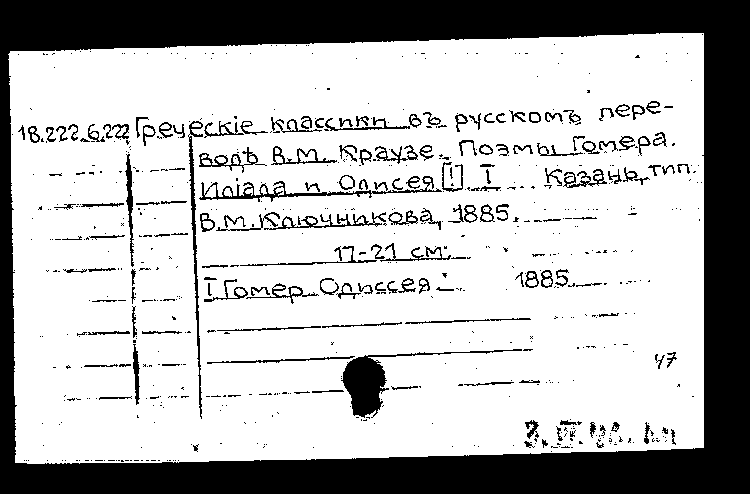 18.222.6.222 Греческіе классики въ русскомъ пере-
водѣ В.М. Краузе. Поэмы Гомера.
Иліада и Одисея [!] I Казань, тип.
В.М. Ключникова, 1885.
17-21 см.
I Гомер Одиссея. 1885.
47